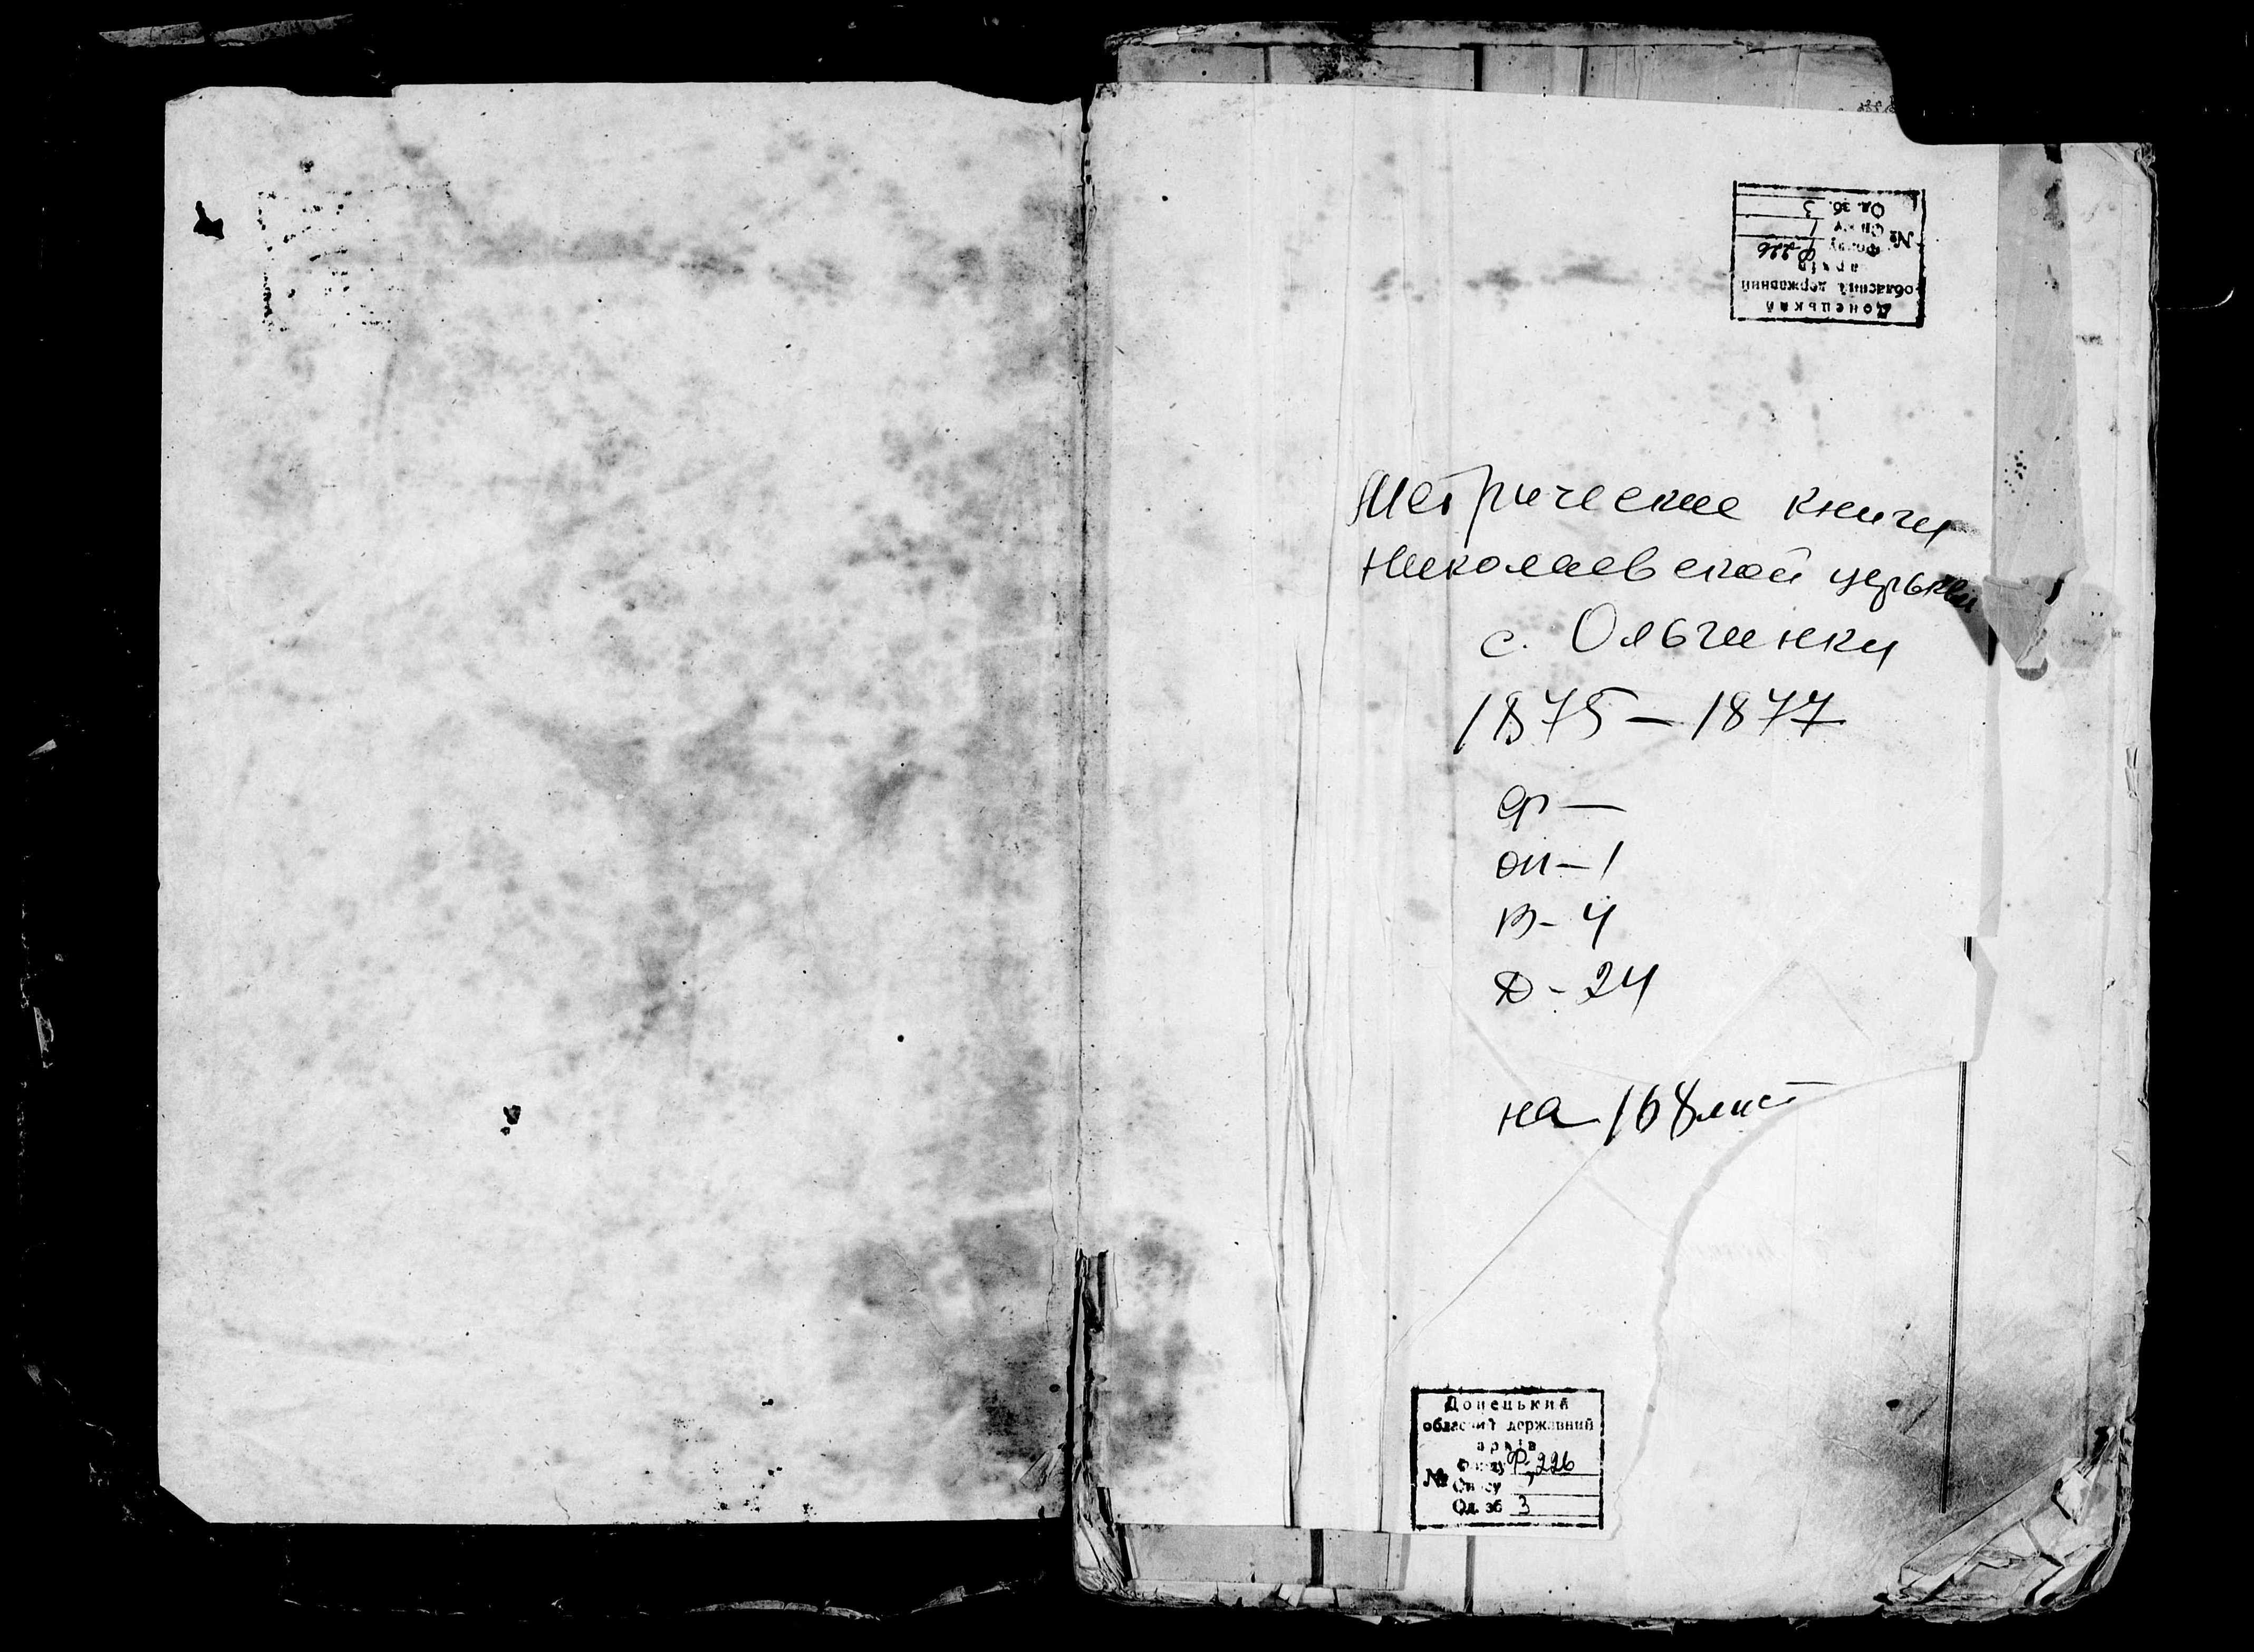 Донецький
обласний державний
архів
№ фонду Ф-226
Опису 1
Од. зб. 3
Метрические книги
Николаевской церькви
с. Ольгинки
1875 – 1877
ф —
оп – 1
в – 4
д – 24
на 168 лист
Донецький
обласний державний
архів
№ Фонду Ф-226
Опису 1
Од. зб 3